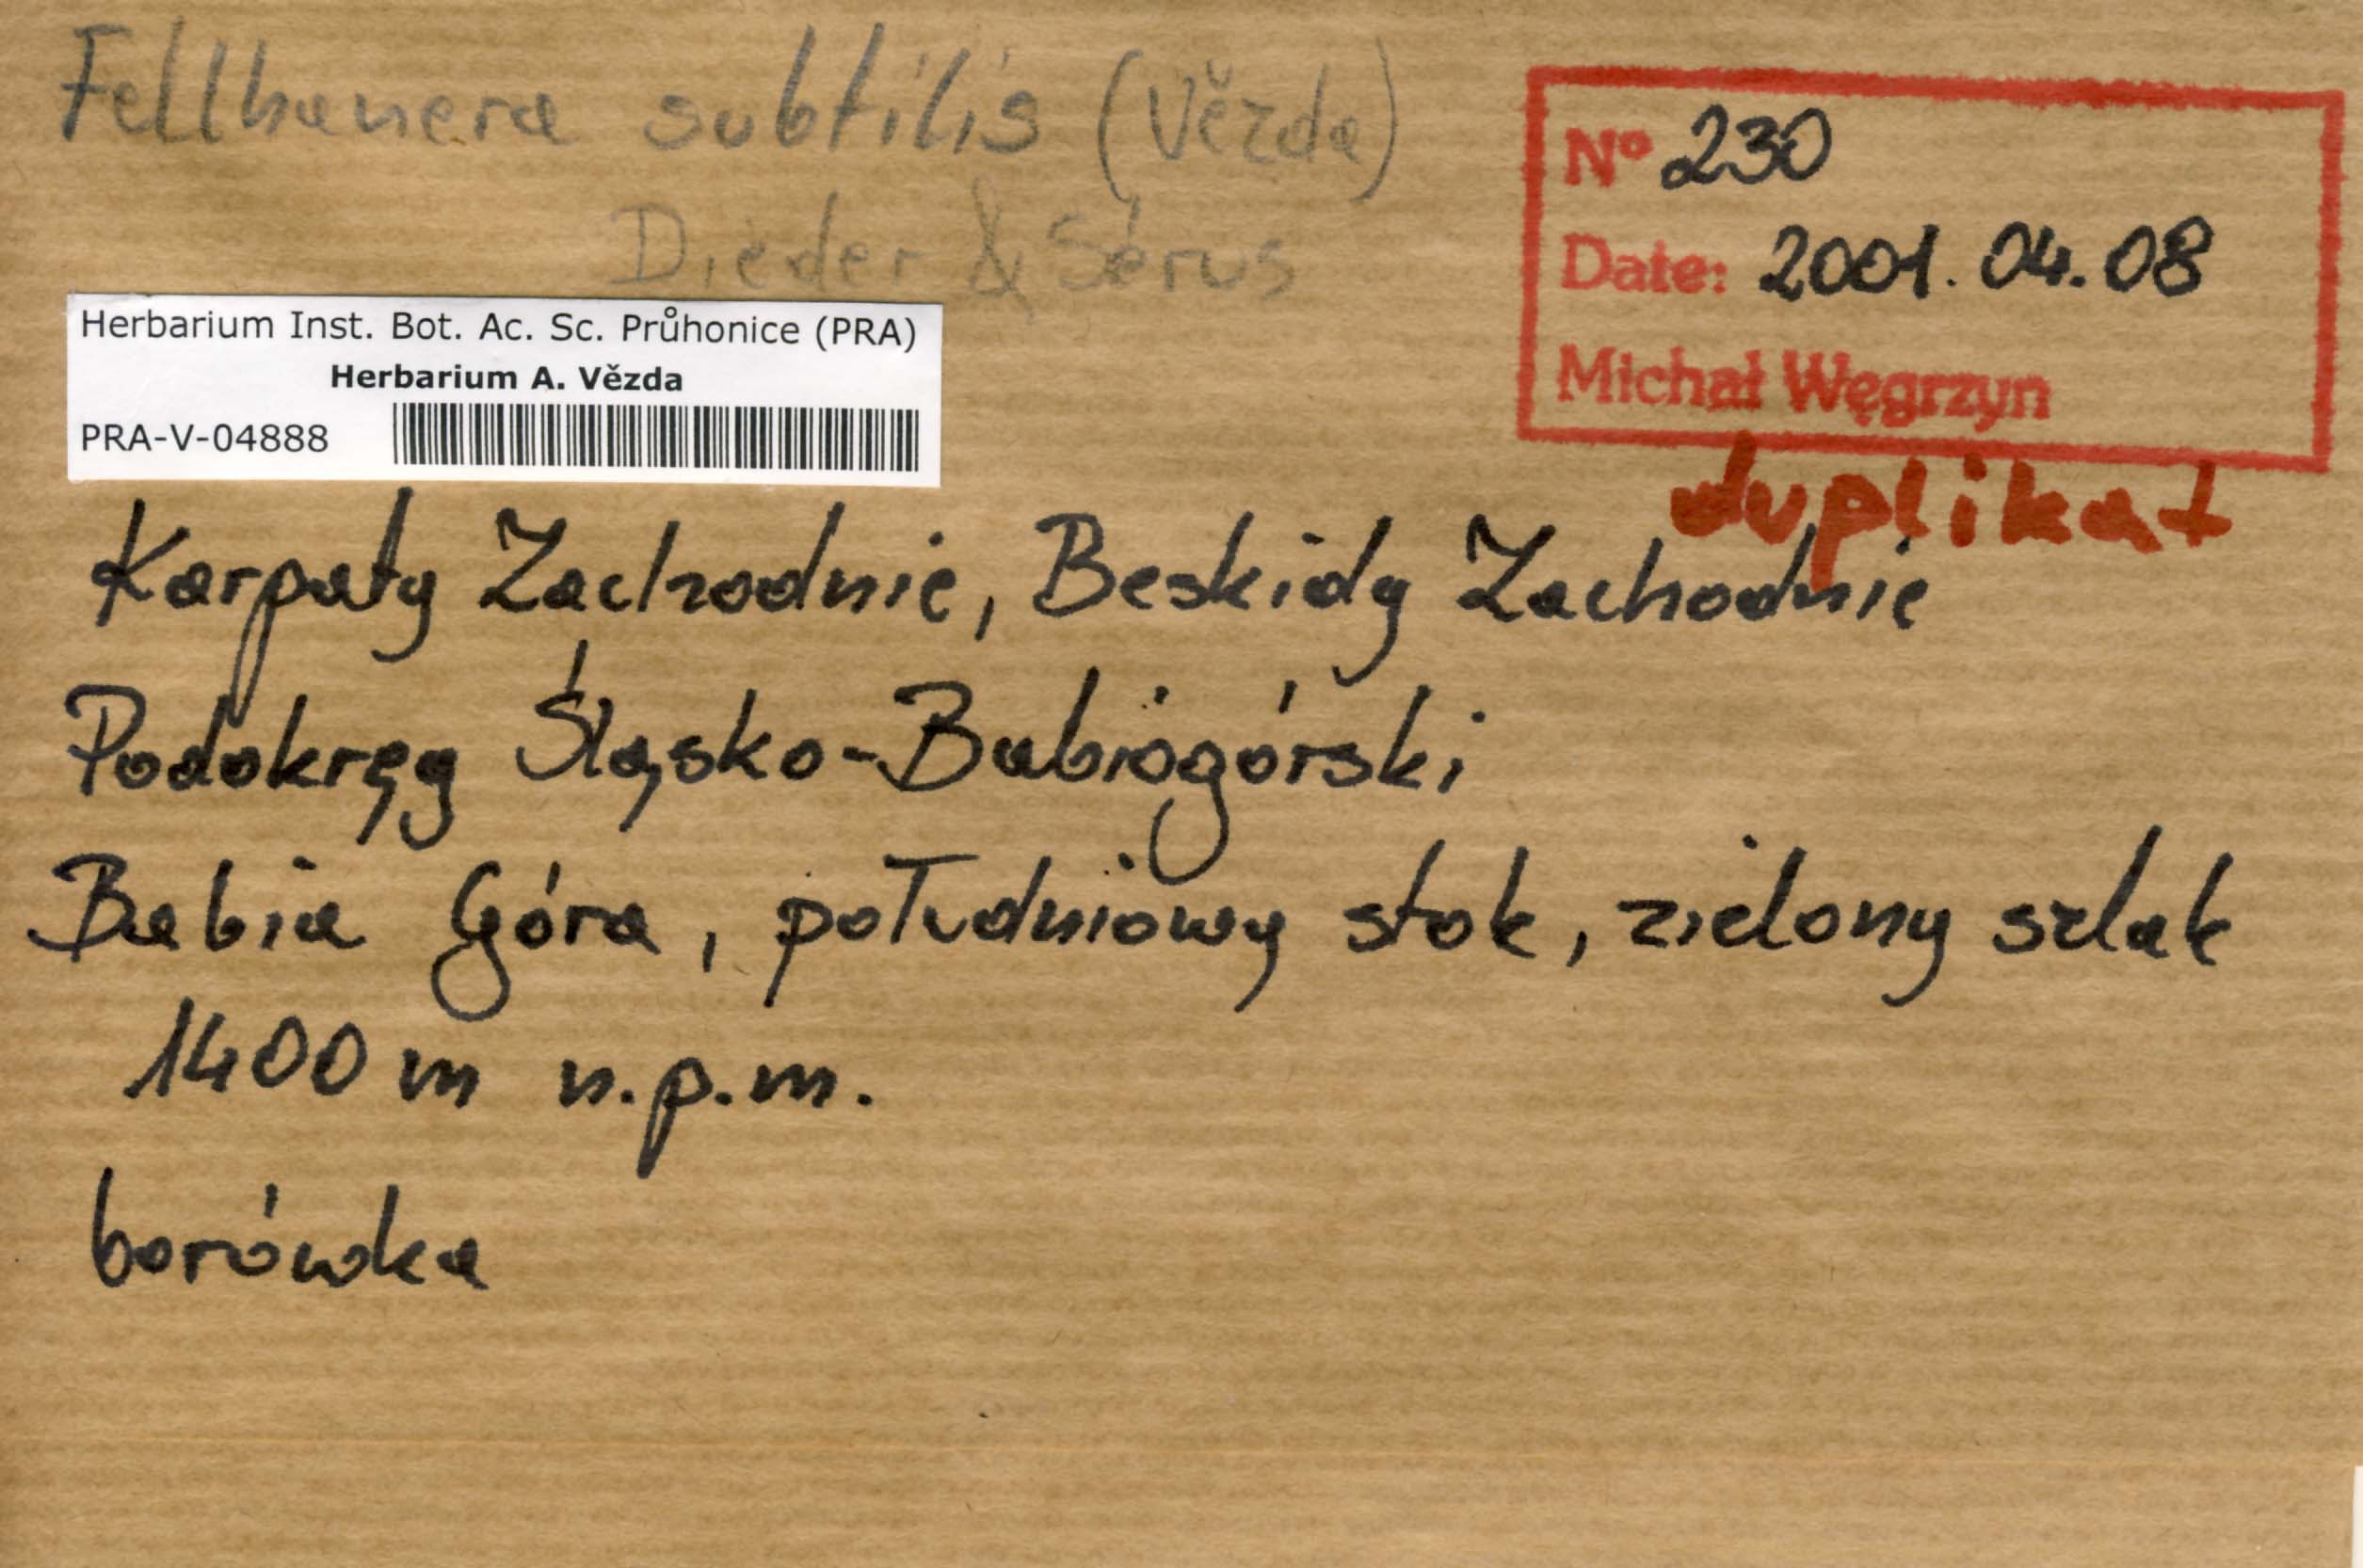 Fellhanera subtilis (Vězda)
Dieder & Sérus
Nº 230
Date: 2001.04.08
Michał Węgrzyn
duplikat
Herbarium Inst. Bot. Ac. Sc. Průhonice (PRA)
Herbarium A. Vězda
PRA-V-04888
Karpaty Zachodnie, Beskidy Zachodnie
Podokręg Śląsko-Babiogórski
Babia Góra, południowy stok, zielony szlak
1400 m n.p.m.
borówka